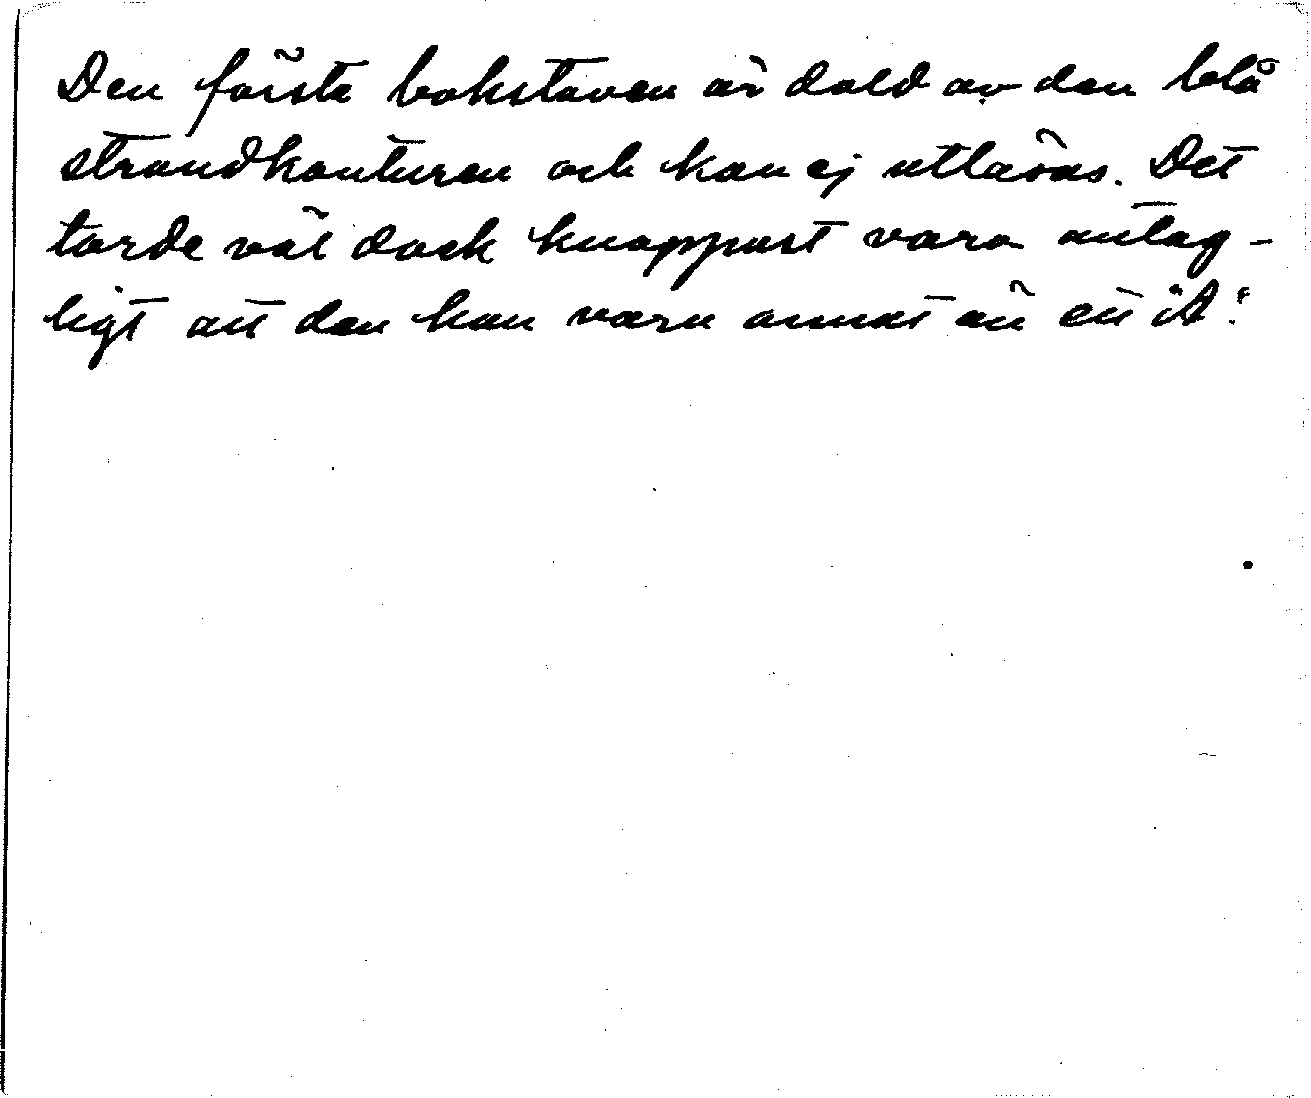 Den förste bokstaven är dold av den blå
strandkonturen och kan ej utläsas. Det
torde väl dock knappast vara antag-
ligt att den kan vara annat än ett "A".